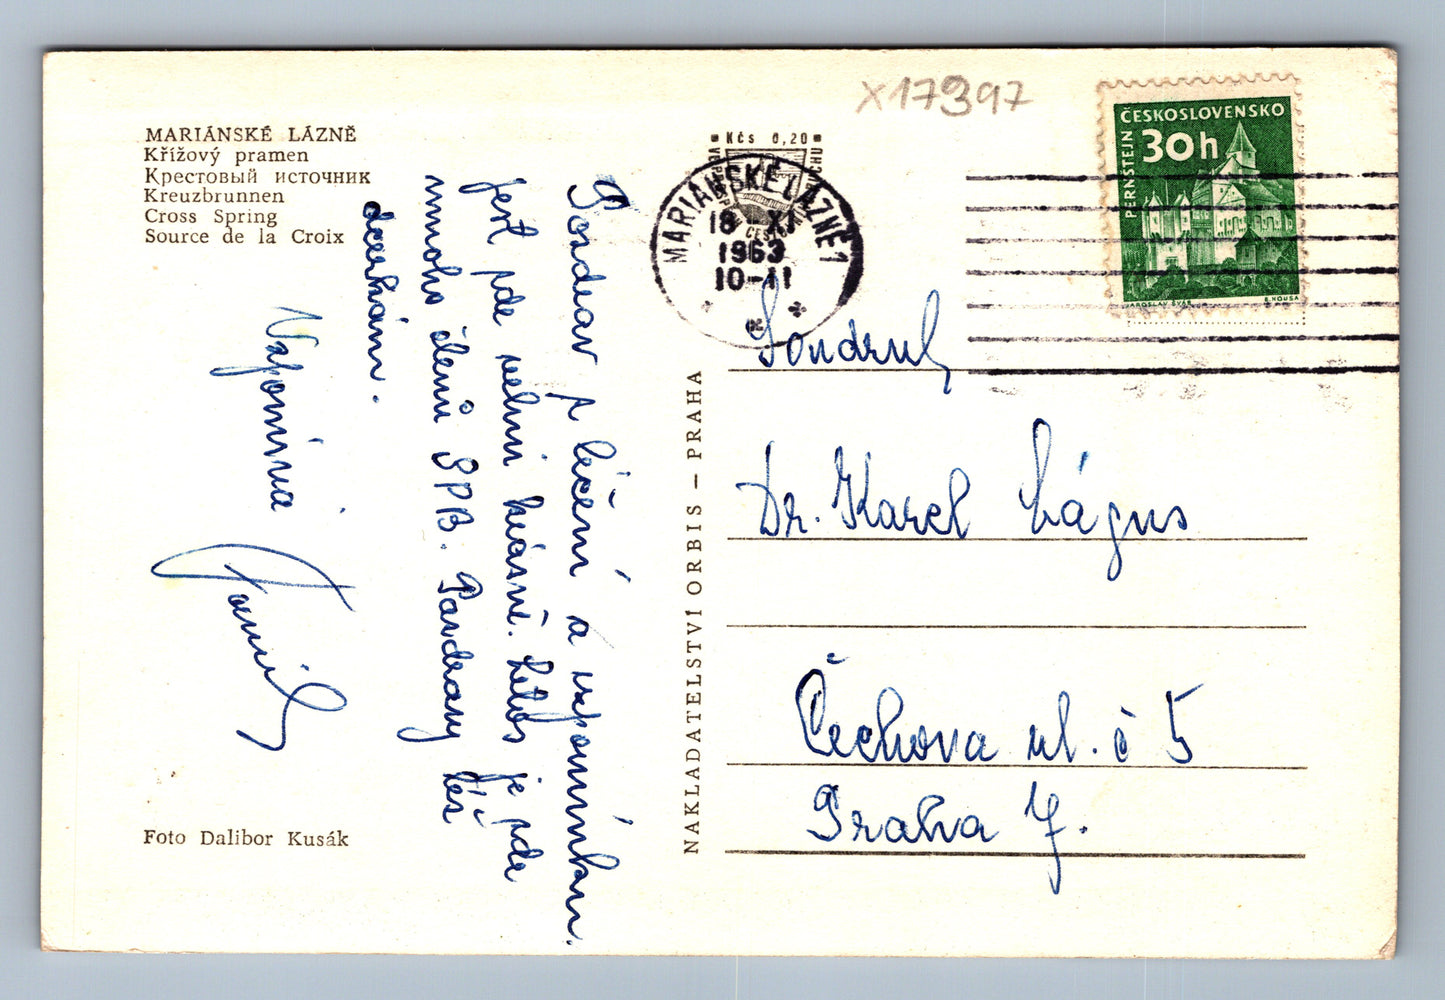 MARIÁNSKÉ LÁZNĚ
Křížový pramen
Крестовый источник
Kreuzbrunnen
Cross Spring
Source de la Croix
Foto Dalibor Kusák
Pozdrav z léčení a vzpomínkou.
jest zde velmi krásně. Letos je zde
mnoho členů SPB. Pozdravy též
Vzpomíná
NAKLADATELSTVÍ ORBIS – PRAHA
X17397
Kčs 0,20
MARIÁNSKÉ LÁZNĚ 1
18 XI
1963
10-11
ČESKOSLOVENSKO
30h
PERNŠTEJN
JAROSLAV ŠVÁB
Soudruh
Dr. Karel Lágus
Čechova ul. č 5
Praha 7.